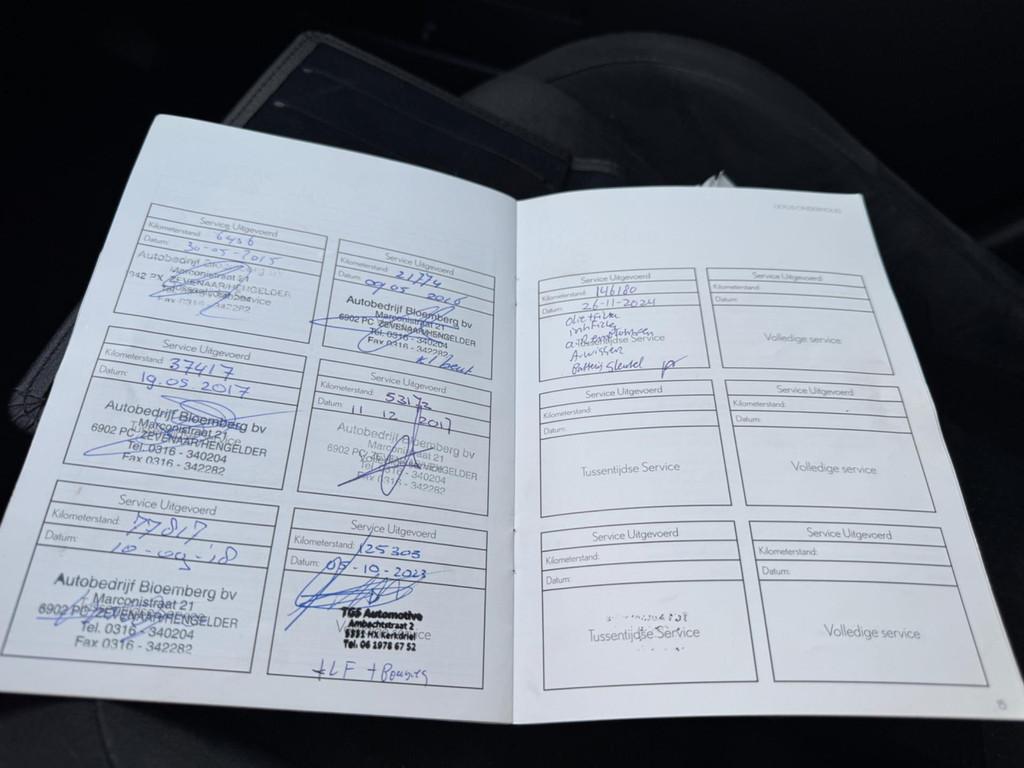 Service Uitgevoerd
Kilometerstand: 6456
Datum: 30-05-2015
Autobedrijf
Marconistraat 21
ZEVENAAR/HENGELDER
Fax 0316 - 342282
Service Uitgevoerd
Kilometerstand: 21774
Datum: 09.05 2016
Autobedrijf Bloemberg bv
Marconistraat 21
6902 PC ZEVENAAR/HENGELDER
Tel. 0316 - 340204
Fax 0316 - 342282
Service Uitgevoerd
Kilometerstand: 37417
Datum: 19.05 2017
Autobedrijf Bloemberg bv
Marconistraat 21
6902 PC ZEVENAAR/HENGELDER
Tel. 0316 - 340204
Fax 0316 - 342282
Service Uitgevoerd
Kilometerstand: 53173
Datum: 11 12 2017
Autobedrijf Bloemberg bv
Marconistraat 21
6902 PC ZEVENAAR/HENGELDER
Tel. 0316 - 340204
Fax 0316 - 342282
Service Uitgevoerd
Kilometerstand: 77817
Datum: 10-09-'18
Autobedrijf Bloemberg bv
Marconistraat 21
6902 PC ZEVENAAR/HENGELDER
Tel. 0316 - 340204
Fax 0316 - 342282
Service Uitgevoerd
Kilometerstand: 125303
Datum: 05-10-2023
TGS Automotive
Ambachtstraat 2
5331 HX Kerkdriel
Tel. 06 1978 67 52
+LF +Bougies
Service Uitgevoerd
Kilometerstand: 146180
Datum: 26-11-2024
Service
Service Uitgevoerd
Kilometerstand:
Datum:
Volledige service
Service Uitgevoerd
Kilometerstand:
Datum:
Tussentijdse Service
Service Uitgevoerd
Kilometerstand:
Datum:
Volledige service
Service Uitgevoerd
Kilometerstand:
Datum:
Tussentijdse Service
Service Uitgevoerd
Kilometerstand:
Datum:
Volledige service
15